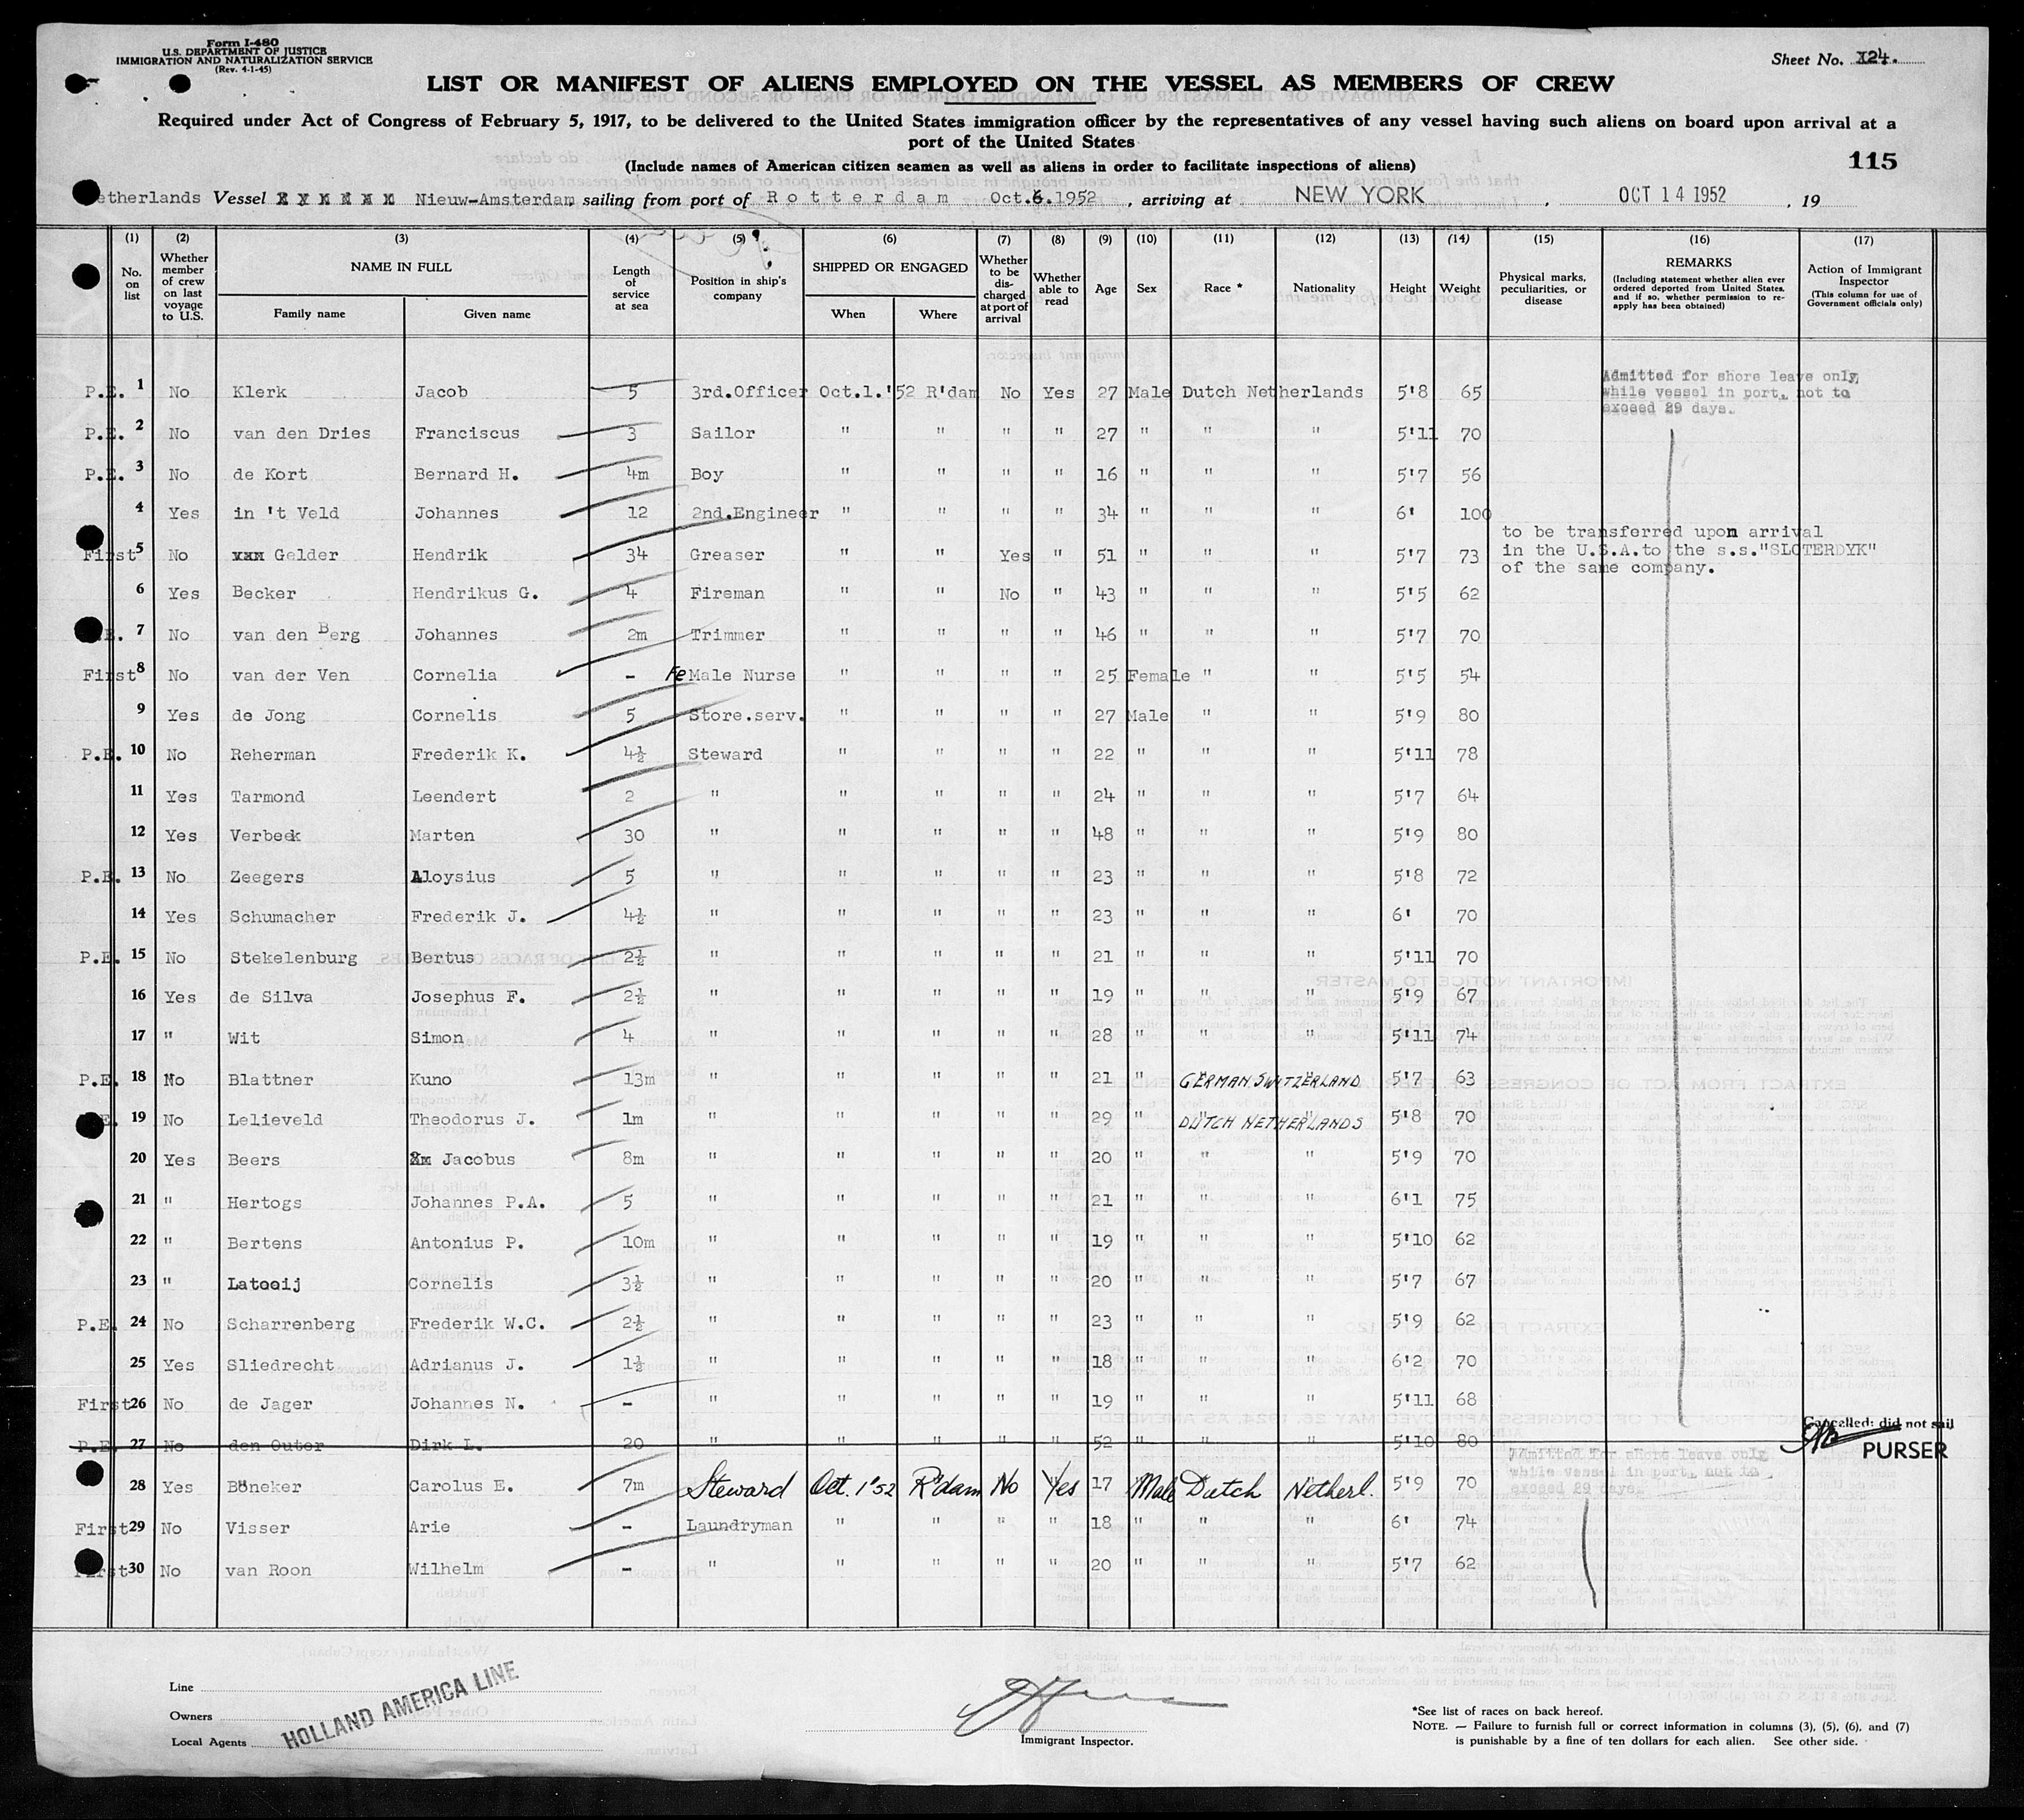 Form I-480
U.S. DEPARTMENT OF JUSTICE
IMMIGRATION AND NATURALIZATION SERVICE
(Rev. 4-1-45)
Sheet No. 124.
LIST OR MANIFEST OF ALIENS EMPLOYED ON THE VESSEL AS MEMBERS OF CREW
Required under Act of Congress of February 5, 1917, to be delivered to the United States immigration officer by the representatives of any vessel having such aliens on board upon arrival at a
port of the United States
(Include names of American citizen seamen as well as aliens in order to facilitate inspections of aliens)
115
etherlands Vessel Nieuw-Amsterdam sailing from port of Rotterdam Oct.6.1952, arriving at NEW YORK, OCT 14 1952, 19
(1) (2) (3) (4) (5) (6) (7) (8) (9) (10) (11) (12) (13) (14) (15) (16) (17)
No. on list Whether member of crew on last voyage to U.S. NAME IN FULL Family name Given name Length of service at sea Position in ship's company SHIPPED OR ENGAGED When Where Whether to be discharged at port of arrival Whether able to read Age Sex Race * Nationality Height Weight Physical marks, peculiarities, or disease REMARKS (Including statement whether alien ever ordered deported from United States, and if so, whether permission to reapply has been obtained) Action of Immigrant Inspector (This column for use of Government officials only)
P.E. 1 No Klerk Jacob 5 3rd.Officer Oct.1.'52 R'dam No Yes 27 Male Dutch Netherlands 5'8 65 Admitted for shore leave only, while vessel in port, not to exceed 29 days.
P.E. 2 No van den Dries Franciscus 3 Sailor " " " " 27 " " " 5'11 70
P.E. 3 No de Kort Bernard H. 4m Boy " " " " 16 " " " 5'7 56
4 Yes in 't Veld Johannes 12 2nd.Engineer " " " " 34 " " " 6' 100
First 5 No Gelder Hendrik 34 Greaser " " Yes " 51 " " " 5'7 73 to be transferred upon arrival in the U.S.A.to the s.s."SLOTERDYK" of the same company.
6 Yes Becker Hendrikus G. 4 Fireman " " No " 43 " " " 5'5 62
E. 7 No van den Berg Johannes 2m Trimmer " " " " 46 " " " 5'7 70
First 8 No van der Ven Cornelia - FeMale Nurse " " " " 25 Female " " 5'5 54
9 Yes de Jong Cornelis 5 Store.serv. " " " " 27 Male " " 5'9 80
P.E. 10 No Reherman Frederik K. 4½ Steward " " " " 22 " " " 5'11 78
11 Yes Tarmond Leendert 2 " " " " " 24 " " " 5'7 64
12 Yes Verbeek Marten 30 " " " " " 48 " " " 5'9 80
P.E. 13 No Zeegers Aloysius 5 " " " " " 23 " " " 5'8 72
14 Yes Schumacher Frederik J. 4½ " " " " " 23 " " " 6' 70
P.E. 15 No Stekelenburg Bertus 2½ " " " " " 21 " " " 5'11 70
16 Yes de Silva Josephus F. 2½ " " " " " 19 " " " 5'9 67
17 " Wit Simon 4 " " " " " 28 " " " 5'11 74
P.E. 18 No Blattner Kuno 13m " " " " " 21 " GERMAN SWITZERLAND 5'7 63
E. 19 No Lelieveld Theodorus J. 1m " " " " " 29 " DUTCH NETHERLANDS 5'8 70
20 Yes Beers Jacobus 8m " " " " " 20 " " " 5'9 70
21 " Hertogs Johannes P.A. 5 " " " " " 21 " " " 6'1 75
22 " Bertens Antonius P. 10m " " " " " 19 " " " 5'10 62
23 " Latooij Cornelis 3½ " " " " " 20 " " " 5'7 67
P.E. 24 No Scharrenberg Frederik W.C. 2½ " " " " " 23 " " " 5'9 62
25 Yes Sliedrecht Adrianus J. 1½ " " " " " 18 " " " 6'2 70
First 26 No de Jager Johannes N. - " " " " " 19 " " " 5'11 68
P.E. 27 No den Outer Dirk L. 20 " " " " " 52 " " " 5'10 80 Cancelled: did not sail PURSER
28 Yes Böneker Carolus E. 7m Steward Oct. 1'52 R'dam No Yes 17 Male Dutch Netherl. 5'9 70 Admitted for shore leave only while vessel in port, not to exceed 29 days.
First 29 No Visser Arie - Laundryman " " " " 18 " " " 6' 74
First 30 No van Roon Wilhelm - " " " " " 20 " " " 5'7 62
Line
Owners
Local Agents
HOLLAND AMERICA LINE
Immigrant Inspector.
*See list of races on back hereof.
NOTE. — Failure to furnish full or correct information in columns (3), (5), (6), and (7)
is punishable by a fine of ten dollars for each alien. See other side.